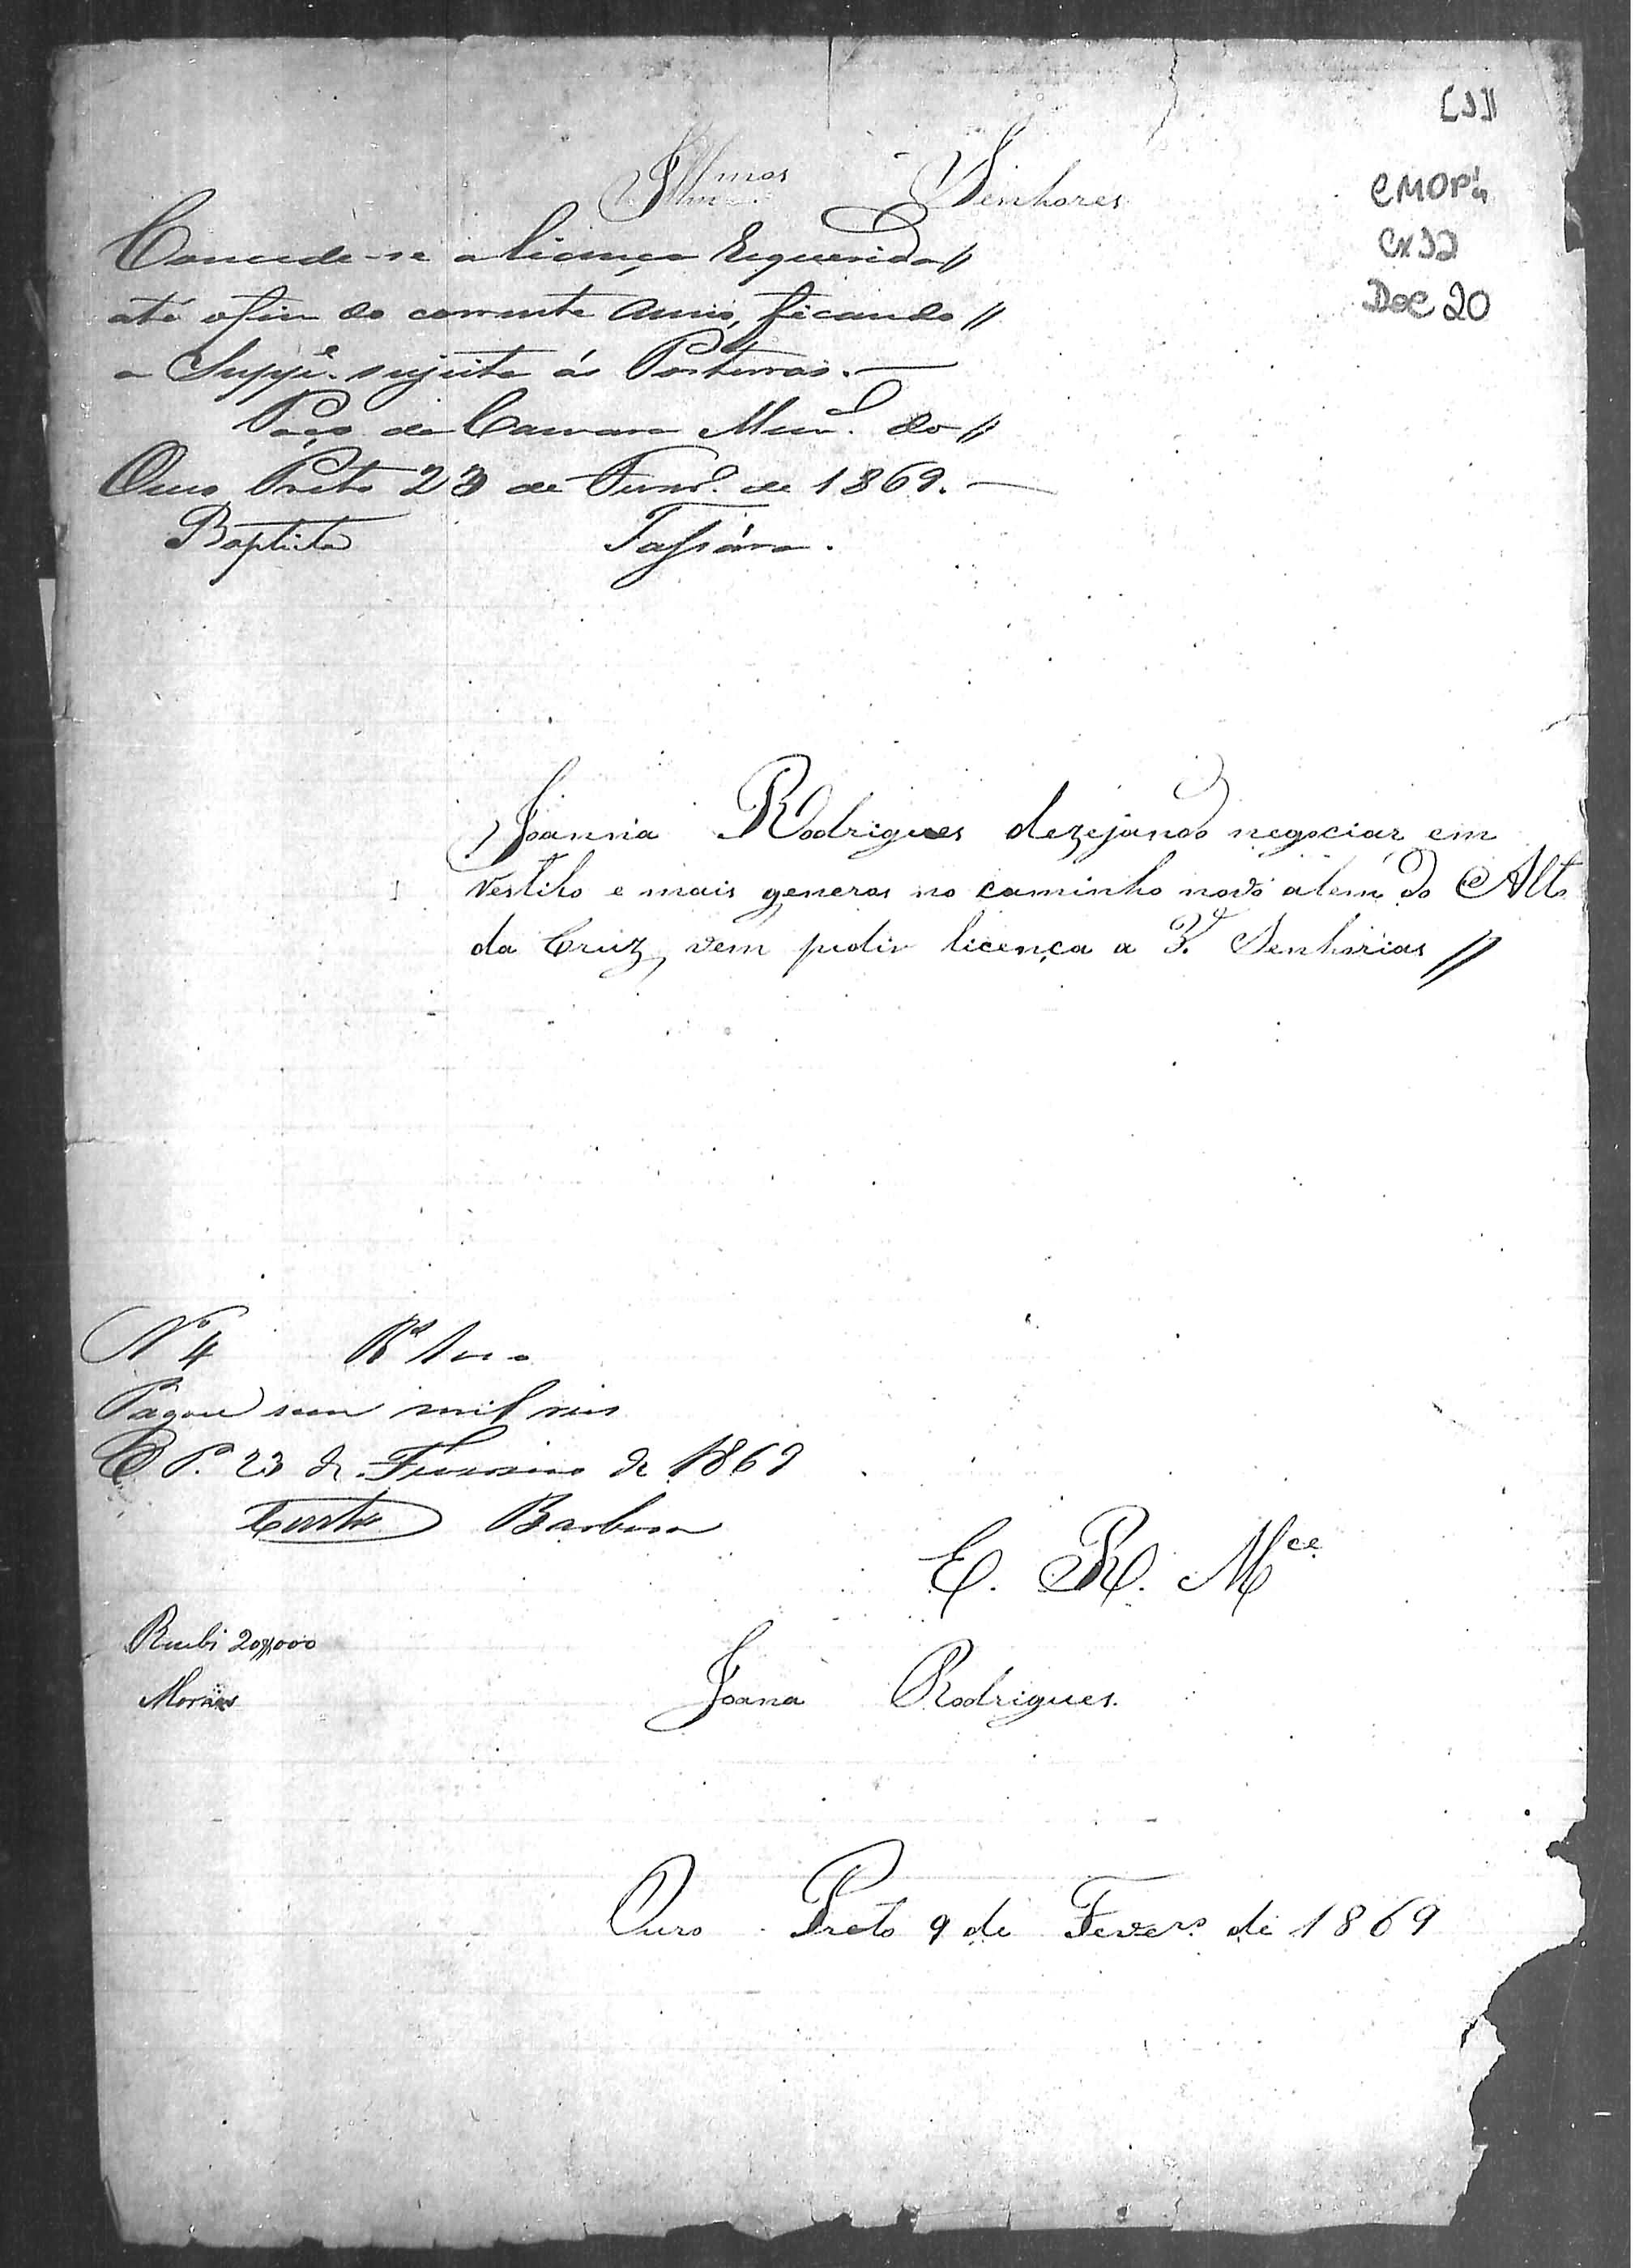 [1]
CMOP
Cx 32
Doc 20
Illmos Senhores
Concede-se a licença requerida //
até o fim do corrente anno, ficando //
a Suppe. sujeita ás Posturas. —
Paço da Camara Mun.al do //
Ouro Preto 23 de Fever.o de 1869. —
Baptista
Joanna Rodrigues dezejando negociar em
Vestiho e mais generos no caminho novo alem do Alto
da Cruz, vem pedir licença a V. Senhorias //
No 4
Pagou um mil reis
O P. 23 de Fevereiro de 1869
Barbosa
E. R. Mce
Recebi 20$000
Moraes
Joana Rodrigues.
Ouro Preto 9 de Fever.o de 1869